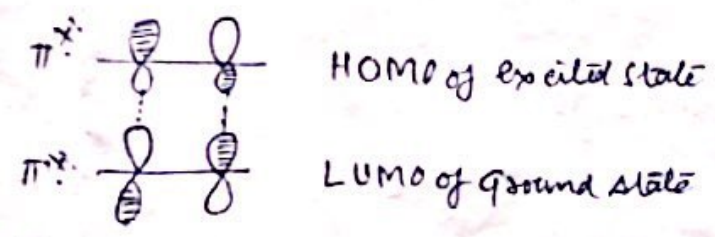 π* HOMO of excited state
π* LUMO of Ground state